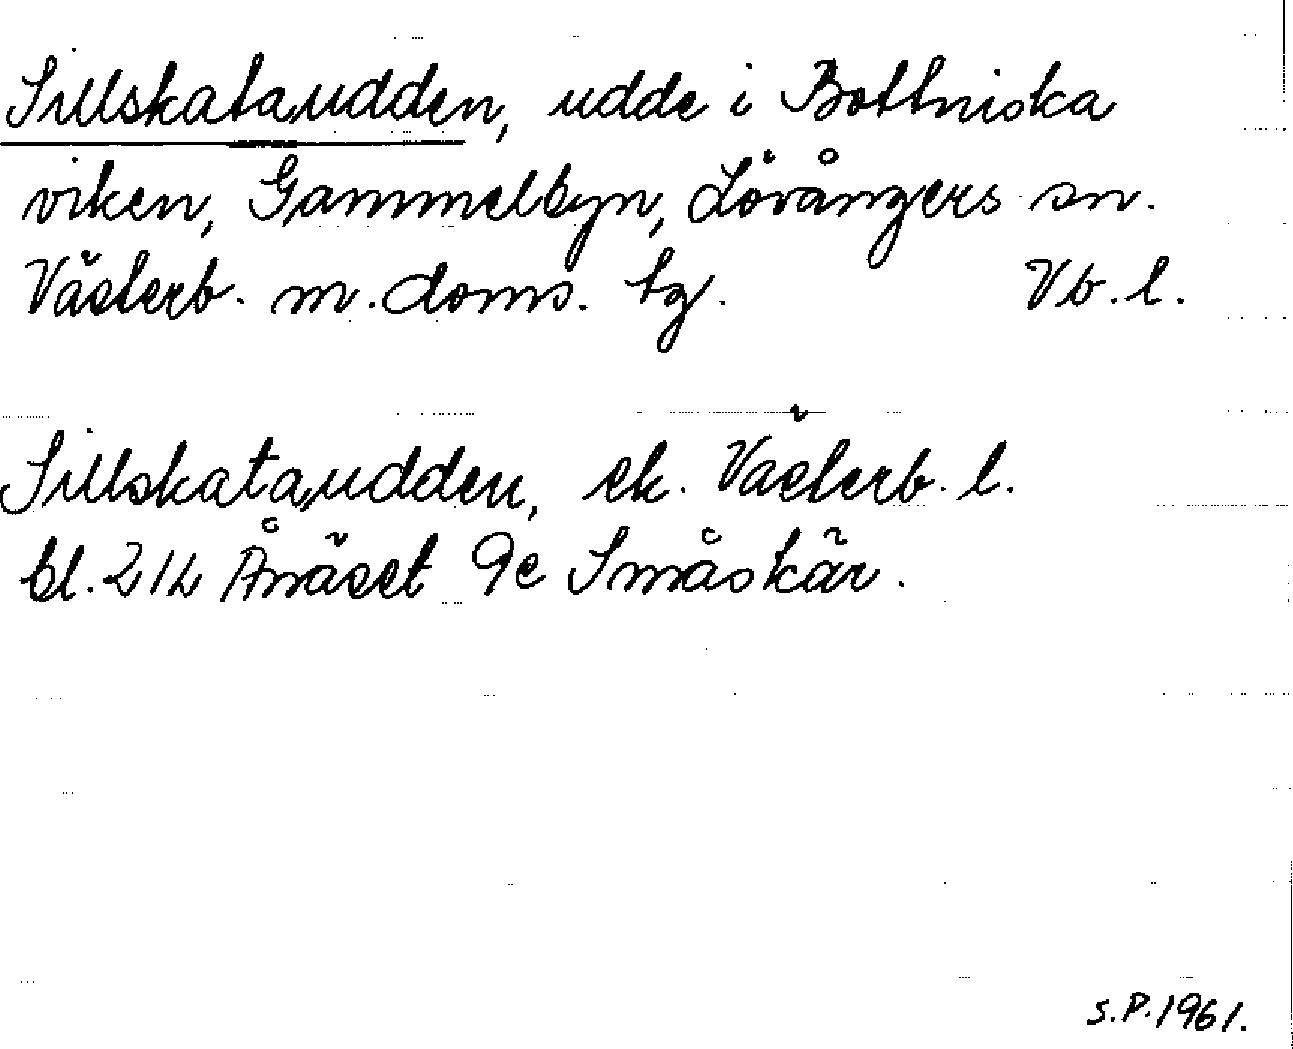 Sillskataudden, udde i Bottniska
viken, Gammelbyn, Lövångers sn.
Västerb. m. doms. tg. Vb. l.
Sillskataudden, ek. Västerb. l.
bl. 21L Ånäset 9e Småskär.
S.P. 1961.